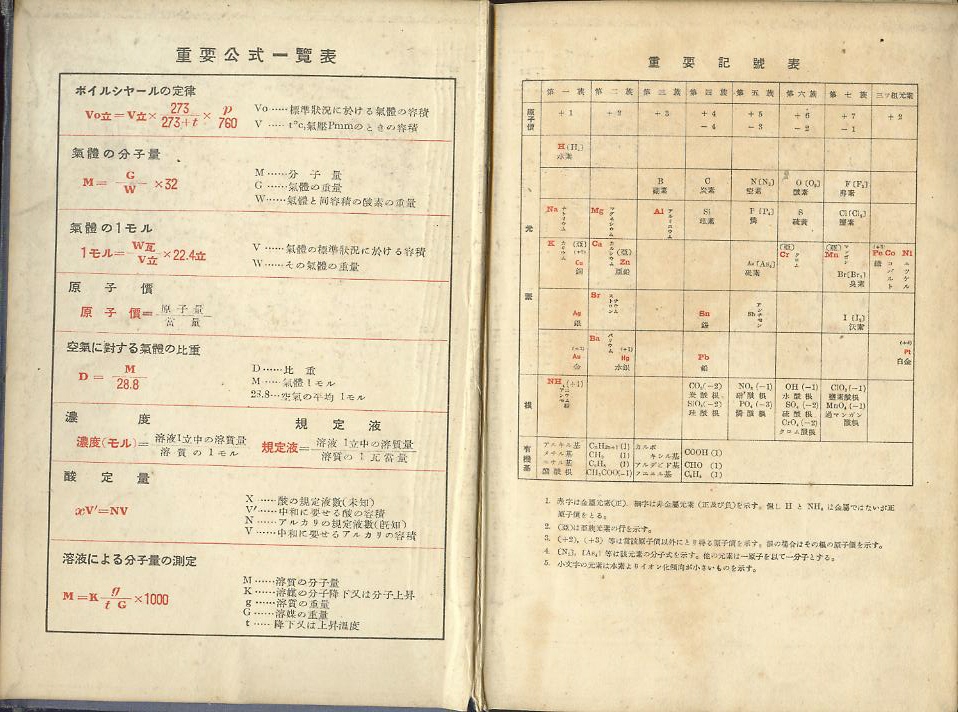 重要公式一覽表
ボイルシヤールの定律
Vo立=V立× 273/273+t × p/760
Vo……標準狀況に於ける氣體の容積
V ……t°c,氣壓Pmmのときの容積
氣體の分子量
M= G/W ×32
M……分子量
G……氣體の重量
W……氣體と同容積の酸素の重量
氣體の1モル
1モル= W瓦/V立 ×22.4立
V ……氣體の標準狀況に於ける容積
W……その氣體の重量
原子價
原子價= 原子量/當量
空氣に對する氣體の比重
D= M/28.8
D……比重
M……氣體1モル
28.8…空氣の平均1モル
濃度
濃度(モル)= 溶液1立中の溶質量/溶質の1モル
規定液
規定液= 溶液1立中の溶質量/溶質の1瓦當量
酸定量
xV'=NV
X ……酸の規定液數(未知)
V'……中和に要せる酸の容積
N……アルカリの規定液數(既知)
V……中和に要せるアルカリの容積
溶液による分子量の測定
M=K g/t G ×1000
M……溶質の分子量
K……溶媒の分子降下又は分子上昇
g……溶質の重量
G……溶媒の重量
t……降下又は上昇溫度
重要記號表
第一族 第二族 第三族 第四族 第五族 第六族 第七族 三ツ組元素
原子價 +1 +2 +3 +4 +5 +6 +7 +2
-4 -3 -2 -1
元素
H(H₂)
水素
B C N(N₂) O(O₂) F(F₂)
硼素 炭素 窒素 酸素 弗素
Na ナトリウム Mg マグネシウム Al アルミニウム Si P(P₄) S Cl(Cl₂)
硅素 燐 硫黄 鹽素
K カリウム (亞) Ca カルシウム (亞) (亞) Cr クロム (亞) Mn マンガン (+3) Fe Co Ni
Cu Zn As(As₄) Br(Br₂) 鐵 コバルト ニツケル
銅 亞鉛 砒素 臭素
Sr ストロンチウム
Ag Sn Sb アンチモン I(I₂)
銀 錫 沃素
Ba バリウム
(+3) (+1) (+4)
Au Hg Pb Pt
金 水銀 鉛 白金
根
NH₄(+1) アンモニウム根 CO₃(-2) NO₃(-1) OH(-1) ClO₃(-1)
炭酸根 硝酸根 水酸根 鹽素酸根
SiO₃(-2) PO₄(-3) SO₄(-2) MnO₄(-1)
硅酸根 燐酸根 硫酸根 過マンガン酸根
CrO₄(-2)
クロム酸根
有機基
アルキル基 CnH₂n+1(1) カルボキシル基 COOH(1)
メチル基 CH₃(1)
エチル基 C₂H₅(1) アルデヒド基 CHO(1)
醋酸根 CH₃COO(-1) フエニル基 C₆H₅(1)
1. 赤字は金屬元素(正) 細字は非金屬元素(正及び負)を示す。但し H と NH₄ は金屬ではないが正原子價をとる。
2. (亞)は亞族元素の行を示す。
3. (+2),(+3) 等は當該原子價以外にとり得る原子價を示す。根の場合はその根の原子價を示す。
4. (N₂), (As₄) 等は該元素の分子式を示す。他の元素は一原子を以て一分子とする。
5. 小文字の元素は水素よりイオン化傾向が小さいものを示す。